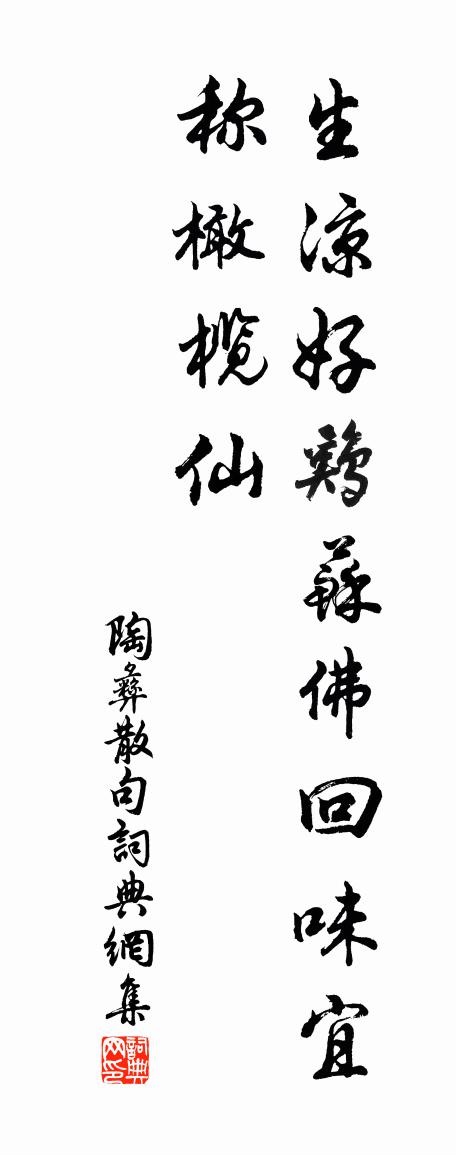 生涼好鷄蘇佛回味宜
称橄榄仙
陶彝散句詞典網集
詞典网印